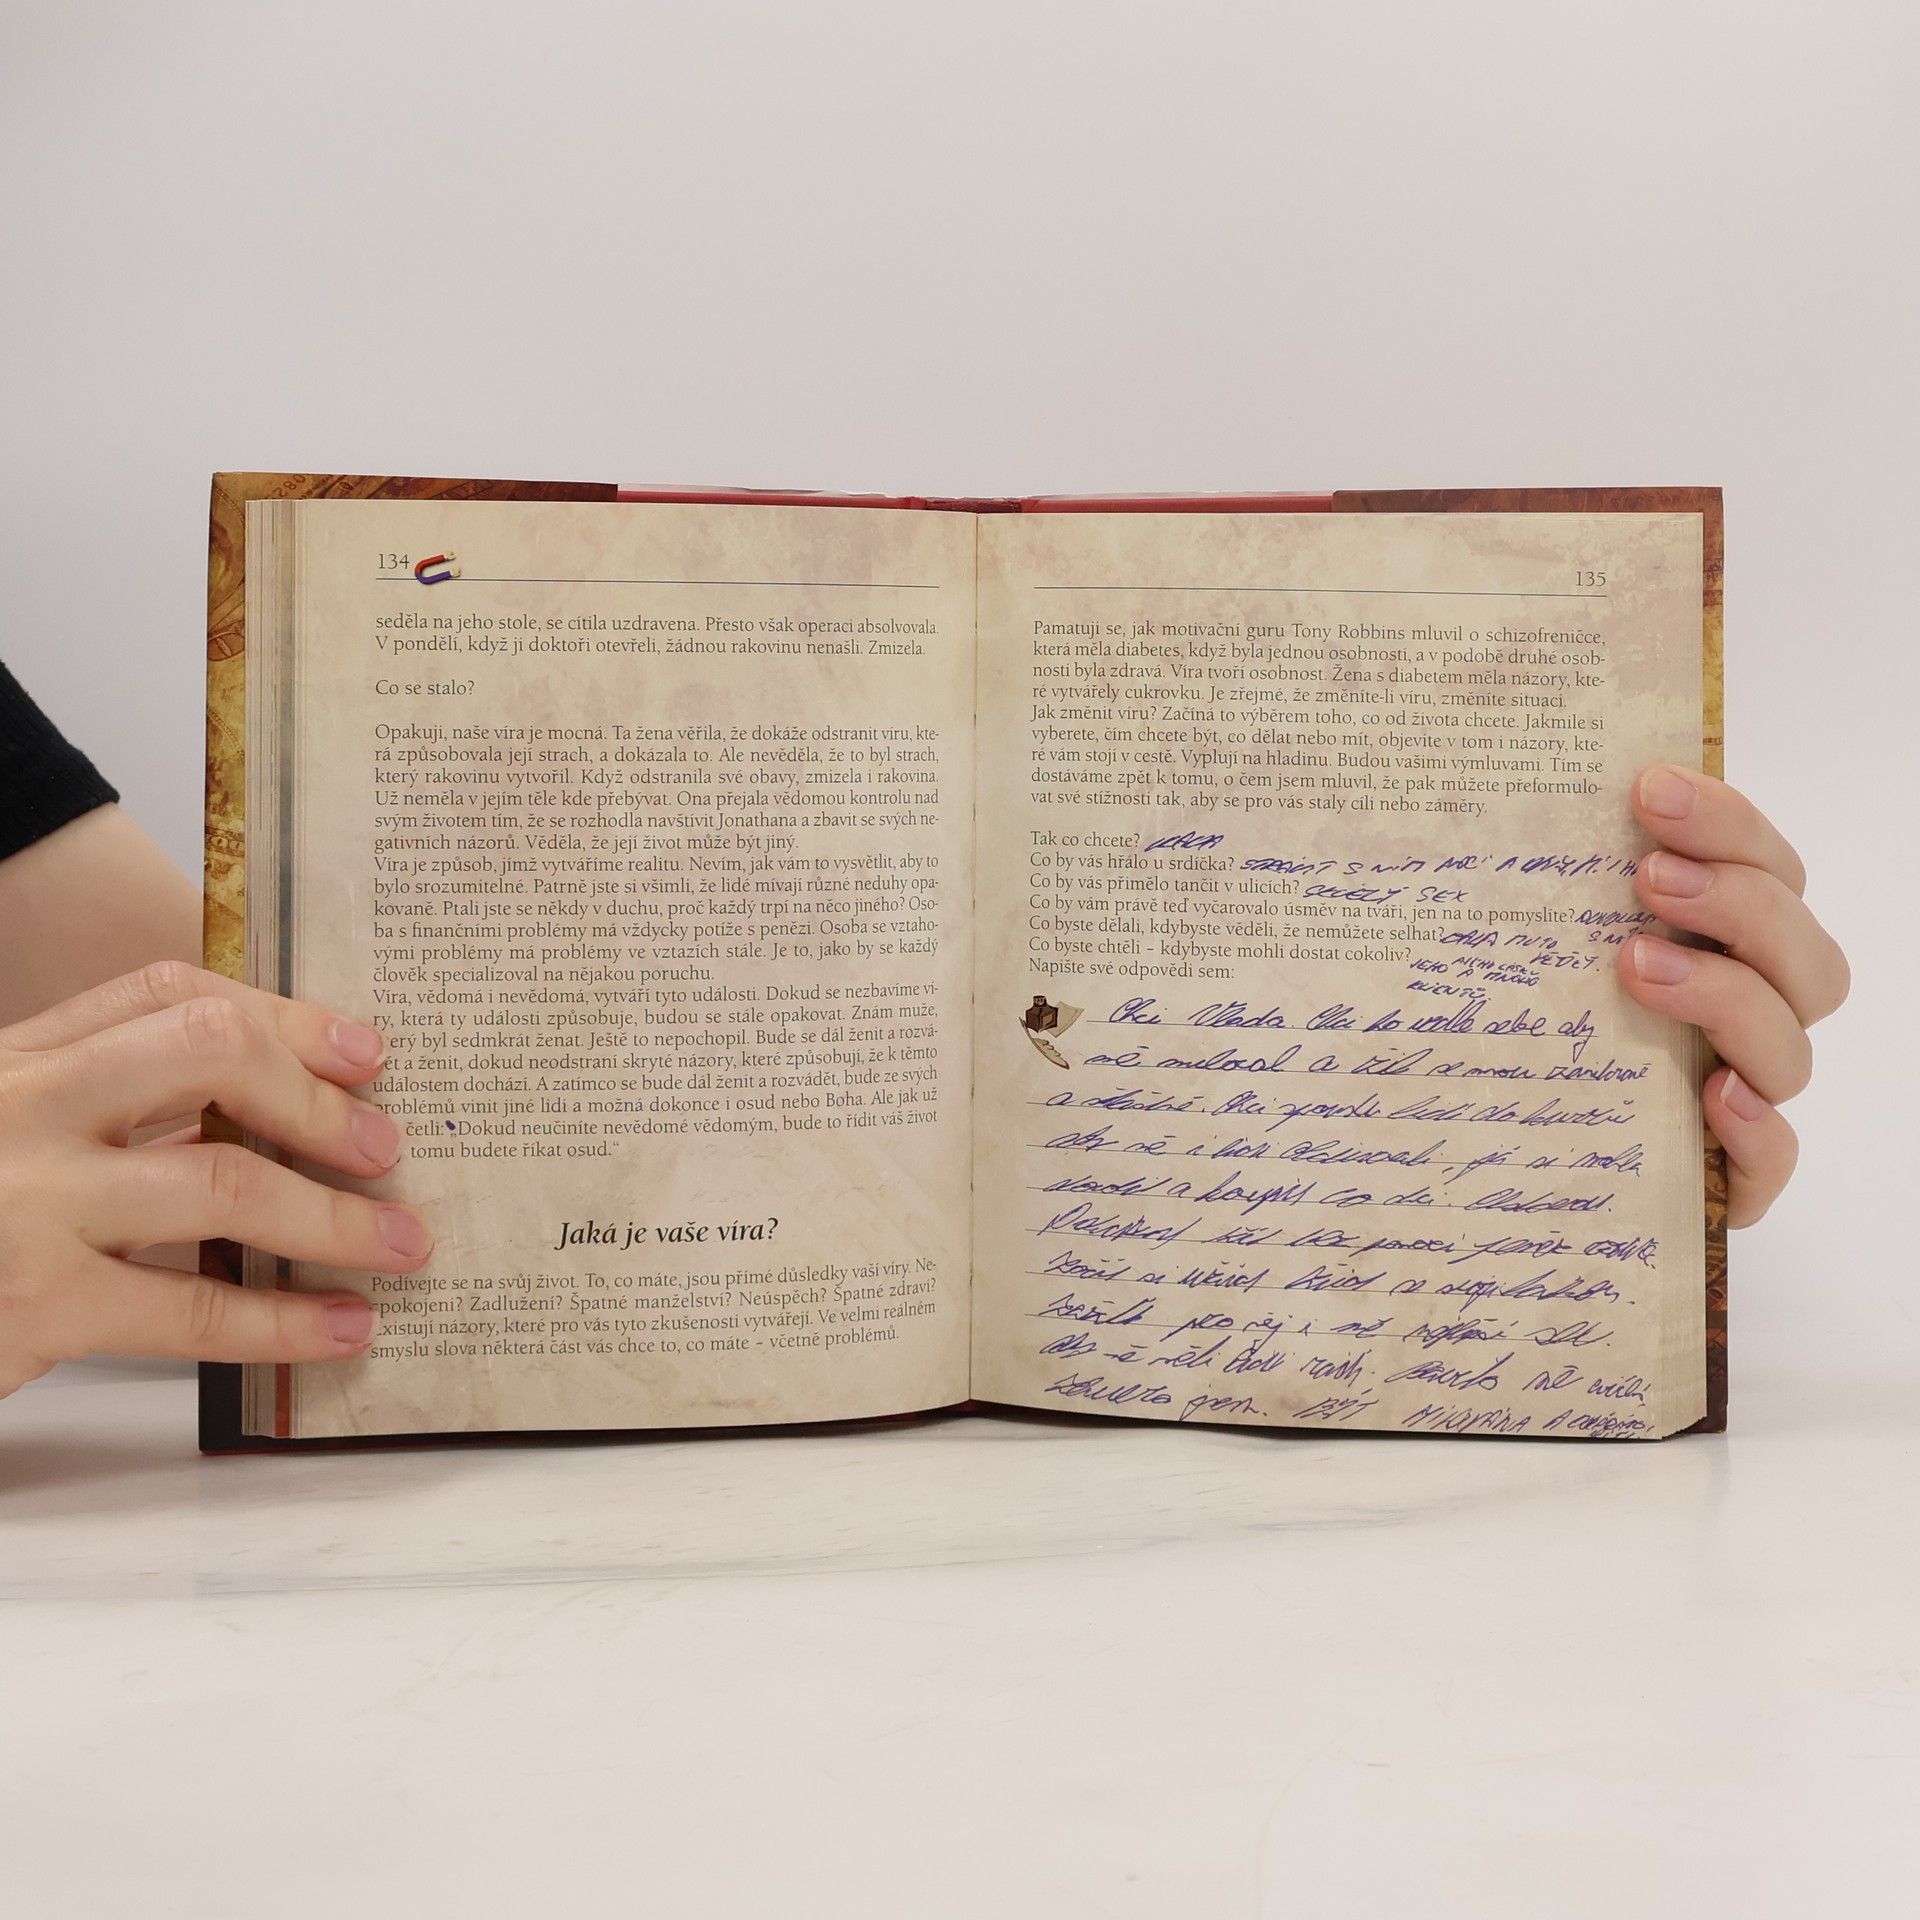 134
seděla na jeho stole, se cítila uzdravena. Přesto však operaci absolvovala.
V pondělí, když ji doktoři otevřeli, žádnou rakovinu nenašli. Zmizela.
Co se stalo?
Opakuji, naše víra je mocná. Ta žena věřila, že dokáže odstranit víru, kte-
rá způsobovala její strach, a dokázala to. Ale nevěděla, že to byl strach,
který rakovinu vytvořil. Když odstranila své obavy, zmizela i rakovina.
Už neměla v jejím těle kde přebývat. Ona přejala vědomou kontrolu nad
svým životem tím, že se rozhodla navštívit Jonathana a zbavit se svých ne-
gativních názorů. Věděla, že její život může být jiný.
Víra je způsob, jímž vytváříme realitu. Nevím, jak vám to vysvětlit, aby to
bylo srozumitelné. Patrně jste si všimli, že lidé mívají různé neduhy opa-
kovaně. Ptali jste se někdy v duchu, proč každý trpí na něco jiného? Oso-
ba s finančními problémy má vždycky potíže s penězi. Osoba se vztaho-
vými problémy má problémy ve vztazích stále. Je to, jako by se každý
člověk specializoval na nějakou poruchu.
Víra, vědomá i nevědomá, vytváří tyto události. Dokud se nezbavíme ví-
ry, která ty události způsobuje, budou se stále opakovat. Znám muže,
erý byl sedmkrát ženat. Ještě to nepochopil. Bude se dál ženit a rozvá-
ět a ženit, dokud neodstraní skryté názory, které způsobují, že k těmto
událostem dochází. A zatímco se bude dál ženit a rozvádět, bude ze svých
problémů vinit jiné lidi a možná dokonce i osud nebo Boha. Ale jak už
četli: „Dokud neučiníte nevědomé vědomým, bude to řídit váš život
tomu budete říkat osud.“
Jaká je vaše víra?
Podívejte se na svůj život. To, co máte, jsou přímé důsledky vaší víry. Ne-
spokojeni? Zadlužení? Špatné manželství? Neúspěch? Špatné zdraví?
Existují názory, které pro vás tyto zkušenosti vytvářejí. Ve velmi reálném
smyslu slova některá část vás chce to, co máte – včetně problémů.
135
Pamatuji se, jak motivační guru Tony Robbins mluvil o schizofreničce,
která měla diabetes, když byla jednou osobností, a v podobě druhé osob-
nosti byla zdravá. Víra tvoří osobnost. Žena s diabetem měla názory, kte-
ré vytvářely cukrovku. Je zřejmé, že změníte-li víru, změníte situaci.
Jak změnit víru? Začíná to výběrem toho, co od života chcete. Jakmile si
vyberete, čím chcete být, co dělat nebo mít, objevíte v tom i názory, kte-
ré vám stojí v cestě. Vyplují na hladinu. Budou vašimi výmluvami. Tím se
dostáváme zpět k tomu, o čem jsem mluvil, že pak můžete přeformulo-
vat své stížnosti tak, aby se pro vás staly cíli nebo záměry.
Tak co chcete?
Co by vás hřálo u srdíčka? S NÍM A
Co by vás přimělo tančit v ulicích? SEX
Co by vám právě teď vyčarovalo úsměv na tváři, jen na to pomyslíte?
Co byste dělali, kdybyste věděli, že nemůžete selhat?
Co byste chtěli – kdybyste mohli dostat cokoliv? JEHO A
Napište své odpovědi sem:
Chci Vlada. Chci ho vedle sebe aby
mě miloval a žil se mnou
a šťastně. Chci lidí do
aby mě i lidi , já si mohla
a koupit co chci.
žít bez
si
pro něj i mě
aby mě měli lidi rádi. mě
jsem. BÝT MILOVÁNA A